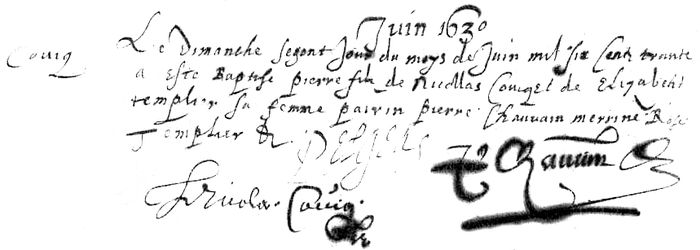 Juin 1630
Coucq Le Dimanche segont Jour du moys de Juin mil six Cent trante
a este Baptise pierre filz de Nicollas Coucq et de Elizabeth
templier sa femme parrin pierre Chauvain merrine Rose
Templier
P Chauvin
Nicola Coucq